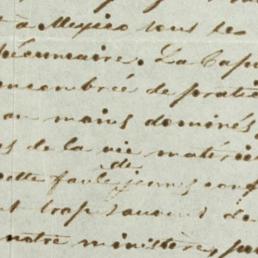 à Mexico tous les
pécuniaire. La Cap
encombrée de prati
au moins dominés
s de la vie matérie
de
cette foule jeunes conf
t trop souvent de
notre ministère, par